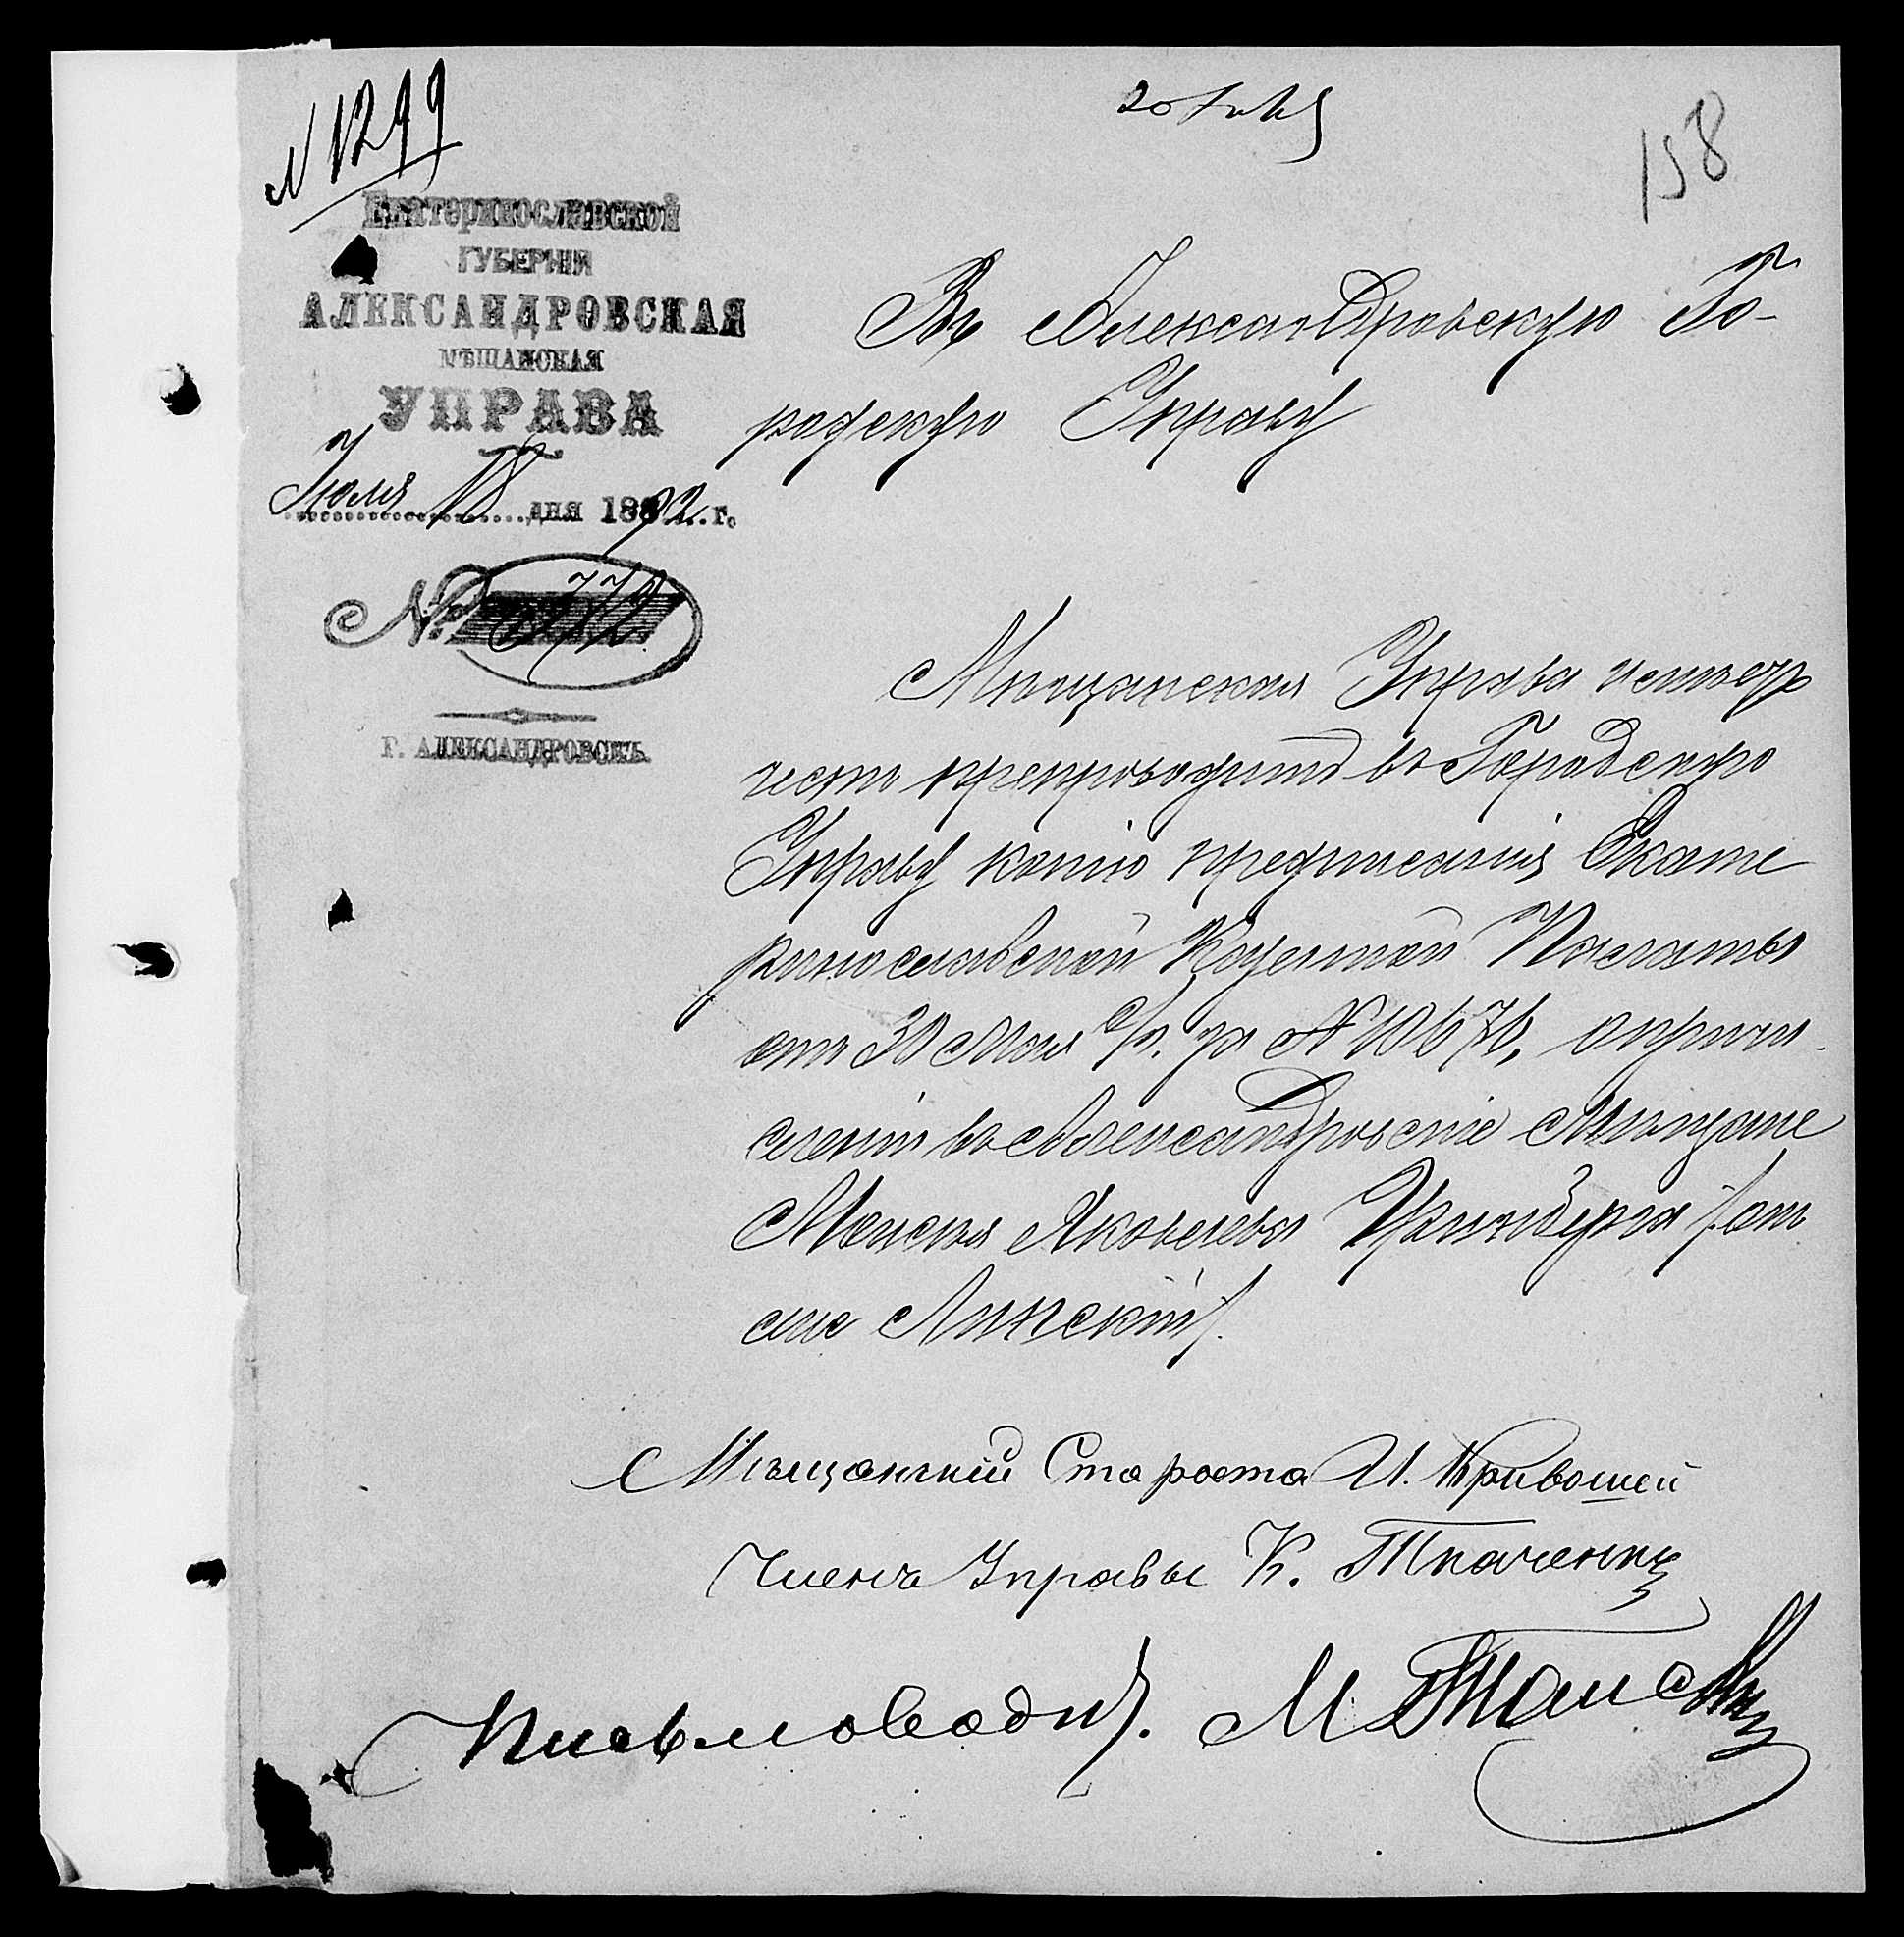 N 1299
158
Екатеринославской
ГУБЕРНІИ
АЛЕКСАНДРОВСКАЯ
МѢЩАНСКАЯ
УПРАВА
Іюля 18 дня 1892 г.
№ 772
Г. АЛЕКСАНДРОВСКЪ.
Въ Александровскую Го-
родскую Управу
Мѣщанская Управа имѣетъ
честь препроводить въ Городскую
Управу копію предписанія Екате
ринославской Казенной Палаты
отъ 30 Мая с/г. за N 10676, о причи-
сленіи въ Александровскіе Мѣщане
Моисея Яковлева Гринберга /онъ
же Линскій/.
Мѣщанскій Староста И. Кривошей
Членъ Управы К. Ткаченко
Письмоводит.